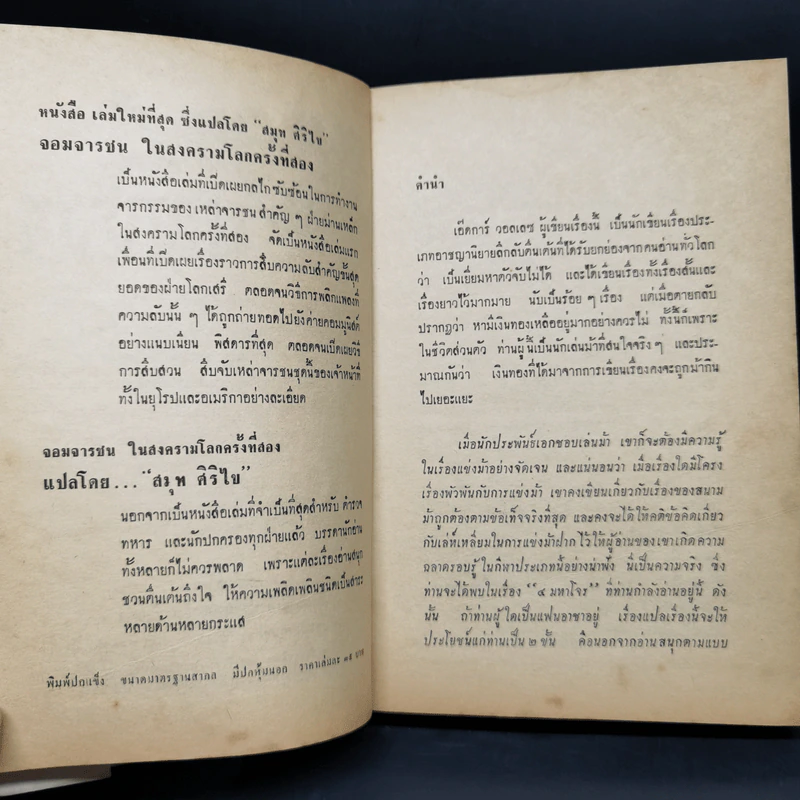 หนังสือ เล่มใหม่ที่สุด ซึ่งแปลโดย "สมุท ศิริไข"
จอมจารชน ในสงครามโลกครั้งที่สอง
เป็นหนังสือเล่มที่เปิดเผยกลไกซับซ้อนในการทำงาน
จารกรรมของ เหล่าจารชน สำคัญ ๆ ฝ่ายม่านเหล็ก
ในสงครามโลกครั้งที่สอง จัดเป็นหนังสือเล่มแรก
เพื่อนที่เปิดเผยเรื่องราวการสืบความลับสำคัญขั้นสุด
ยอดของฝ่ายโลกเสรี ตลอดจนวิธีการพลิกแพลงที่
ความลับนั้น ๆ ได้ถูกถ่ายทอดไปยังค่ายคอมมูนิสต์
อย่างแนบเนียน พิสดารที่สุด ตลอดจนเปิดเผยวิธี
การสืบสวน สืบจับเหล่าจารชนชุดนี้ของเจ้าหน้าที่
ทั้งในยุโรปและอเมริกาอย่างละเอียด
จอมจารชน ในสงครามโลกครั้งที่สอง
แปลโดย... "สมุท ศิริไข"
นอกจากเป็นหนังสือเล่มที่จำเป็นที่สุดสำหรับ ตำรวจ
ทหาร และนักปกครองทุกฝ่ายแล้ว บรรดานักอ่าน
ทั้งหลายก็ไม่ควรพลาด เพราะแต่ละเรื่องอ่านสนุก
ชวนตื่นเต้นถึงใจ ให้ความเพลิดเพลินชนิดเป็นสาระ
หลายด้านหลายกระแส
พิมพ์ปกแข็ง ขนาดมาตรฐานสากล มีปกหุ้มนอก ราคาเล่มละ บาท
คำนำ
เอ๊ดการ์ วอลเลซ ผู้เขียนเรื่องนี้ เป็นนักเขียนเรื่องประ-
เภทอาชญานิยายลึกลับตื่นเต้นที่ได้รับยกย่องจากคนอ่านทั่วโลก
ว่า เป็นเยี่ยมหาตัวจับไม่ได้ และได้เขียนเรื่องทั้งเรื่องสั้นและ
เรื่องยาวไว้มากมาย นับเป็นร้อย ๆ เรื่อง แต่เมื่อตายกลับ
ปรากฏว่า หามีเงินทองเหลืออยู่มากอย่างควรไม่ ทั้งนี้ก็เพราะ
ในชีวิตส่วนตัว ท่านผู้นี้เป็นนักเล่นม้าที่สนใจจริง ๆ และประ-
มาณกันว่า เงินทองที่ได้มาจากการเขียนเรื่องคงจะถูกม้ากิน
ไปเยอะแยะ
เมื่อนักประพันธ์เอกชอบเล่นม้า เขาก็จะต้องมีความรู้
ในเรื่องแข่งม้าอย่างจัดเจน และแน่นอนว่า เมื่อเรื่องใดมีโครง
เรื่องพัวพันกับการแข่งม้า เขาคงเขียนเกี่ยวกับเรื่องของสนาม
ม้าถูกต้องตามข้อเท็จจริงที่สุด และคงจะได้ให้คติข้อคิดเกี่ยว
กับเล่ห์เหลี่ยมในการแข่งม้าฝากไว้ให้ผู้อ่านของเขาเกิดความ
ฉลาดรอบรู้ ในกีฬาประเภทนี้อย่างน่าฟัง นี่เป็นความจริง ซึ่ง
ท่านจะได้พบในเรื่อง "๔ มหาโจร" ที่ท่านกำลังอ่านอยู่นี้ ดัง
นั้น ถ้าท่านผู้ใดเป็นแฟนอาชาอยู่ เรื่องแปลเรื่องนี้จะให้
ประโยชน์แก่ท่านเป็น ๒ ชั้น คือนอกจากอ่านสนุกตามแบบ